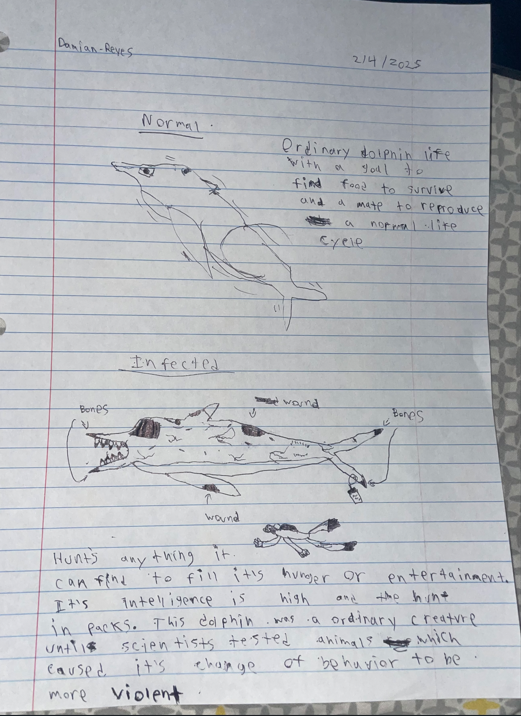 Damian-Reyes
2/4/2025
Normal.
Ordinary dolphin life
with a goal to
find food to survive
and a mate to reproduce
a normal life
cycle
Infected
Bones
wound
Bones
wound
Hunt's anything it.
can find to fill it's hunger or entertainment.
It's intelligence is high and the hunt
in packs. This dolphin was a ordinary creature
until scientists tested animals which
caused it's change of behavior to be
more violent.